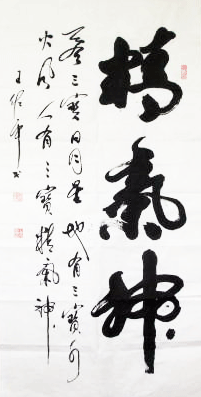 精氣神
三寶日月星地有三寶水
火風人有三寶精氣神
王